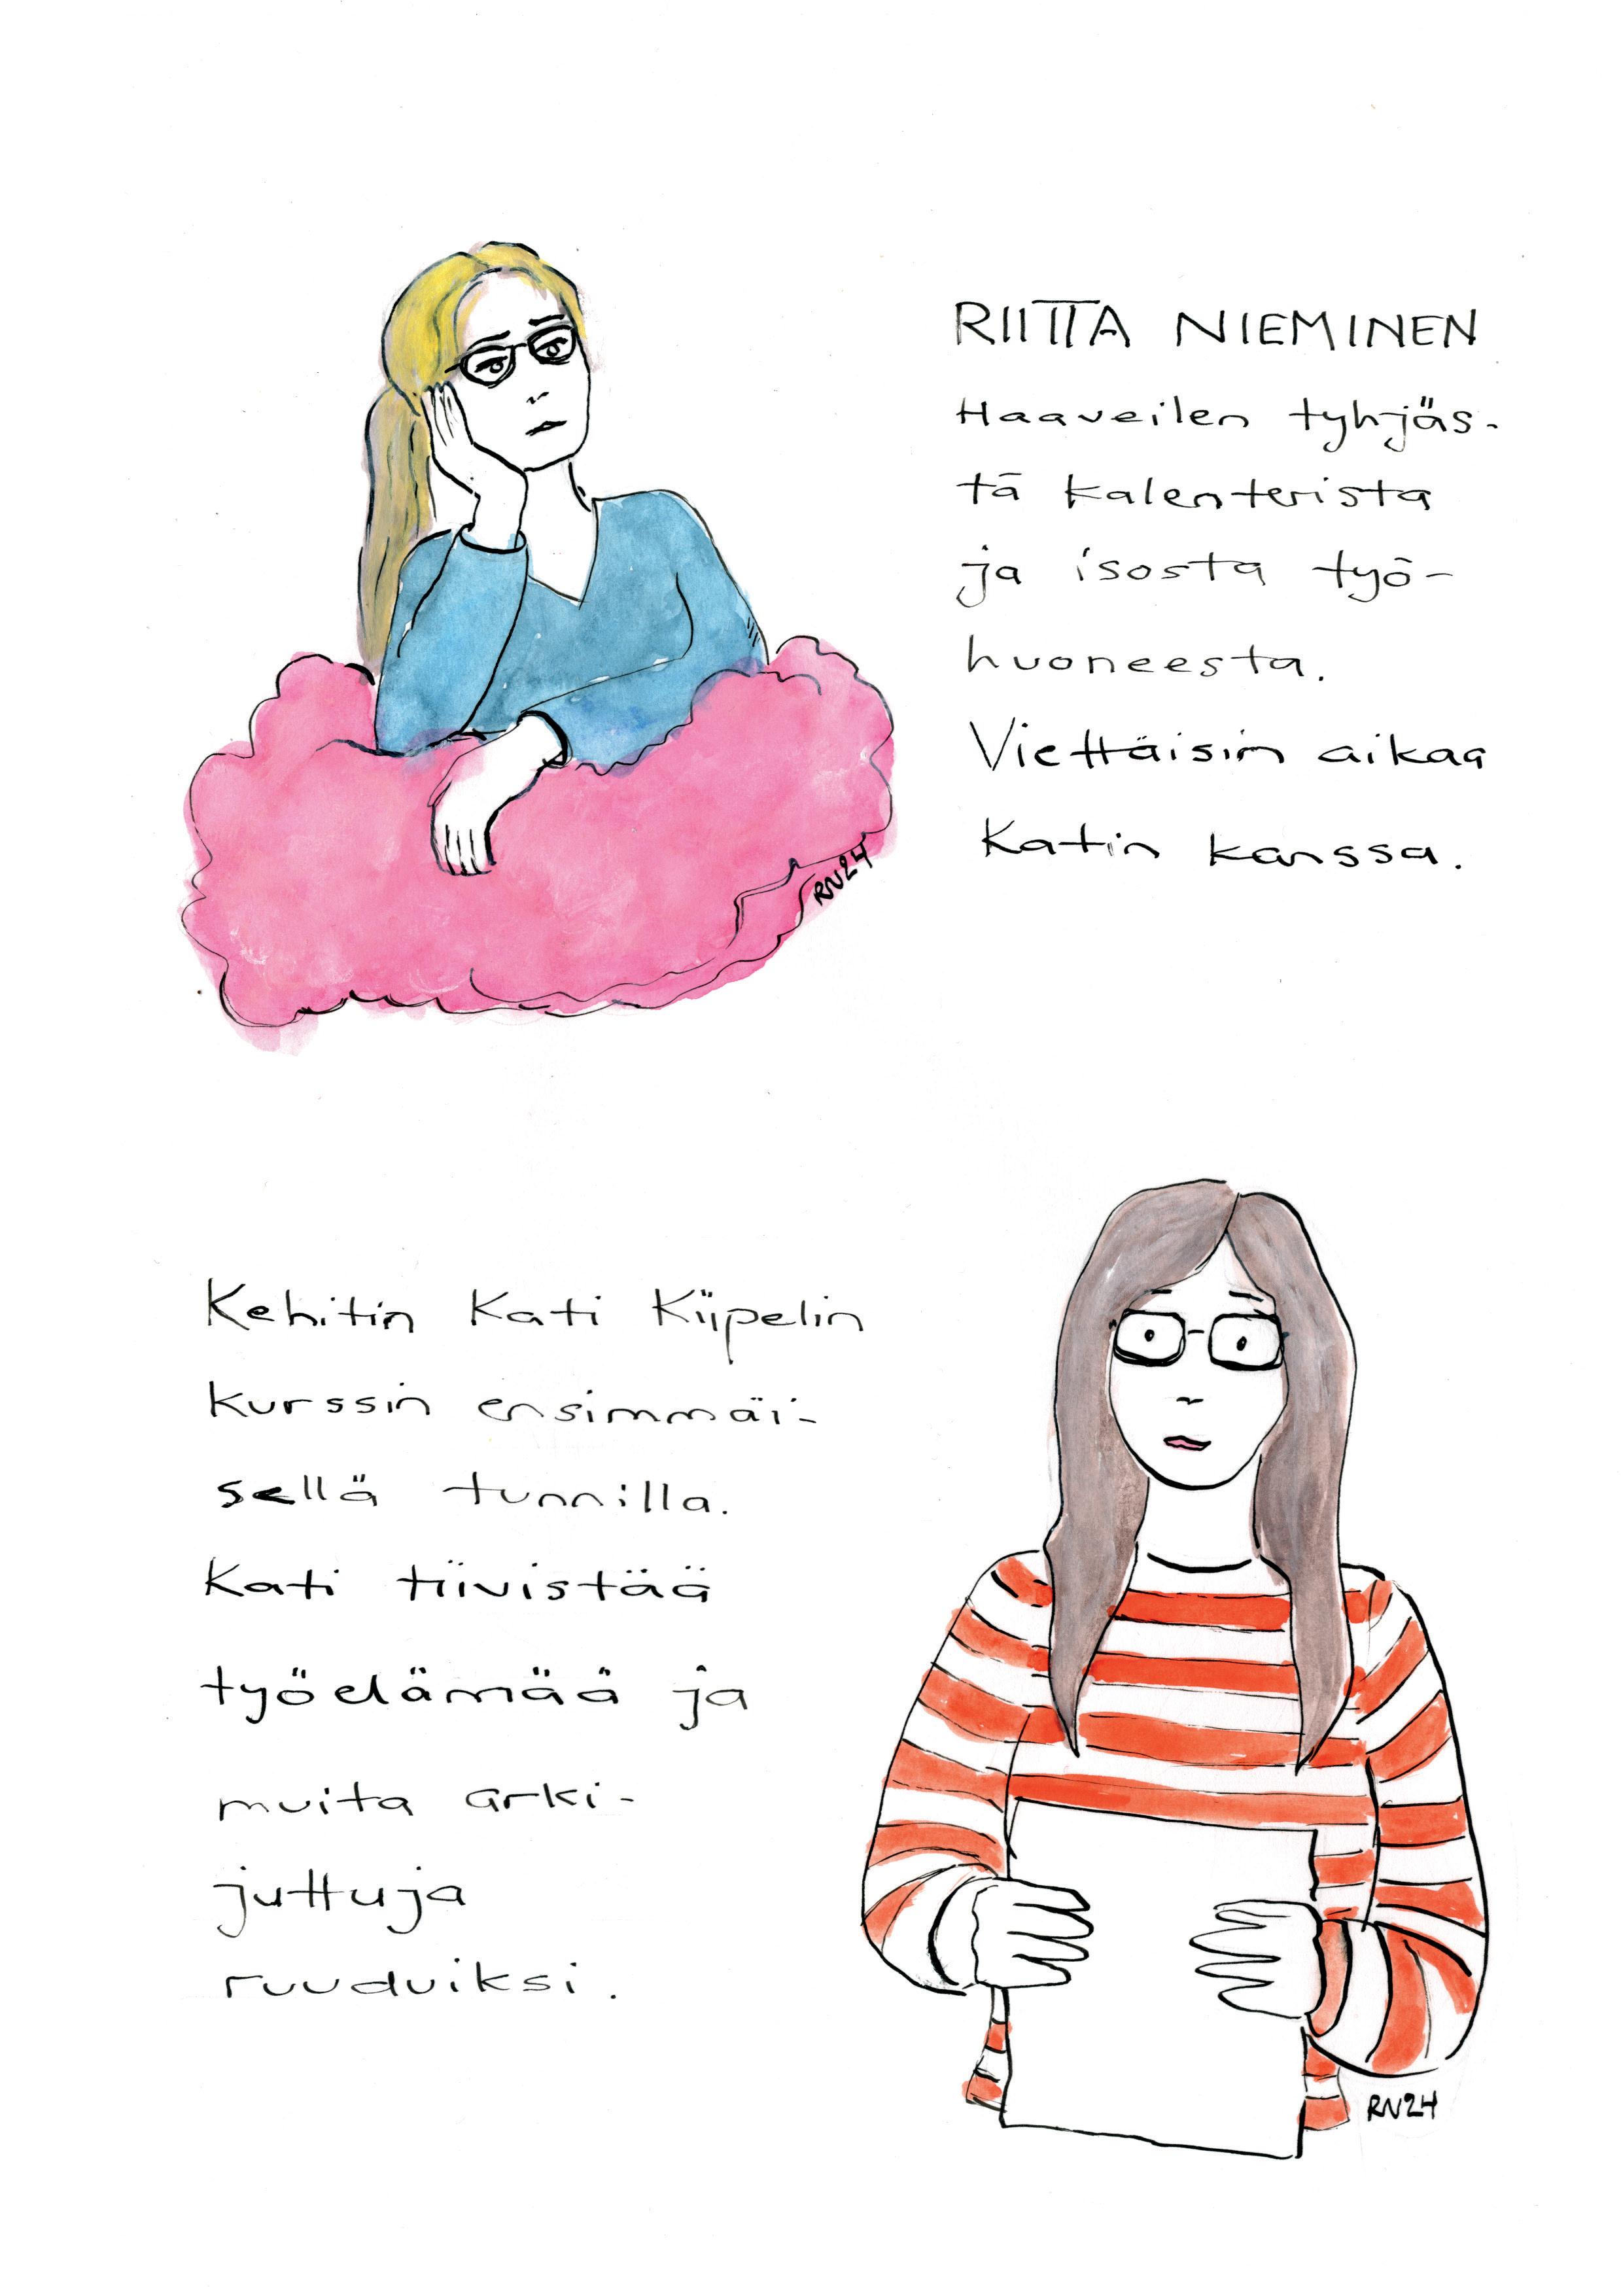 RIITTA NIEMINEN
Haaveilen tyhjäs-
tä kalenterista
ja isosta työ-
huoneesta.
Viettäisin aikaa
Katin kanssa.
RN24
Kehitin Kati Kiipelin
kurssin ensimmäi-
sellä tunnilla.
Kati tiivistää
työelämää ja
muita arki-
juttuja
ruuduiksi.
RN24